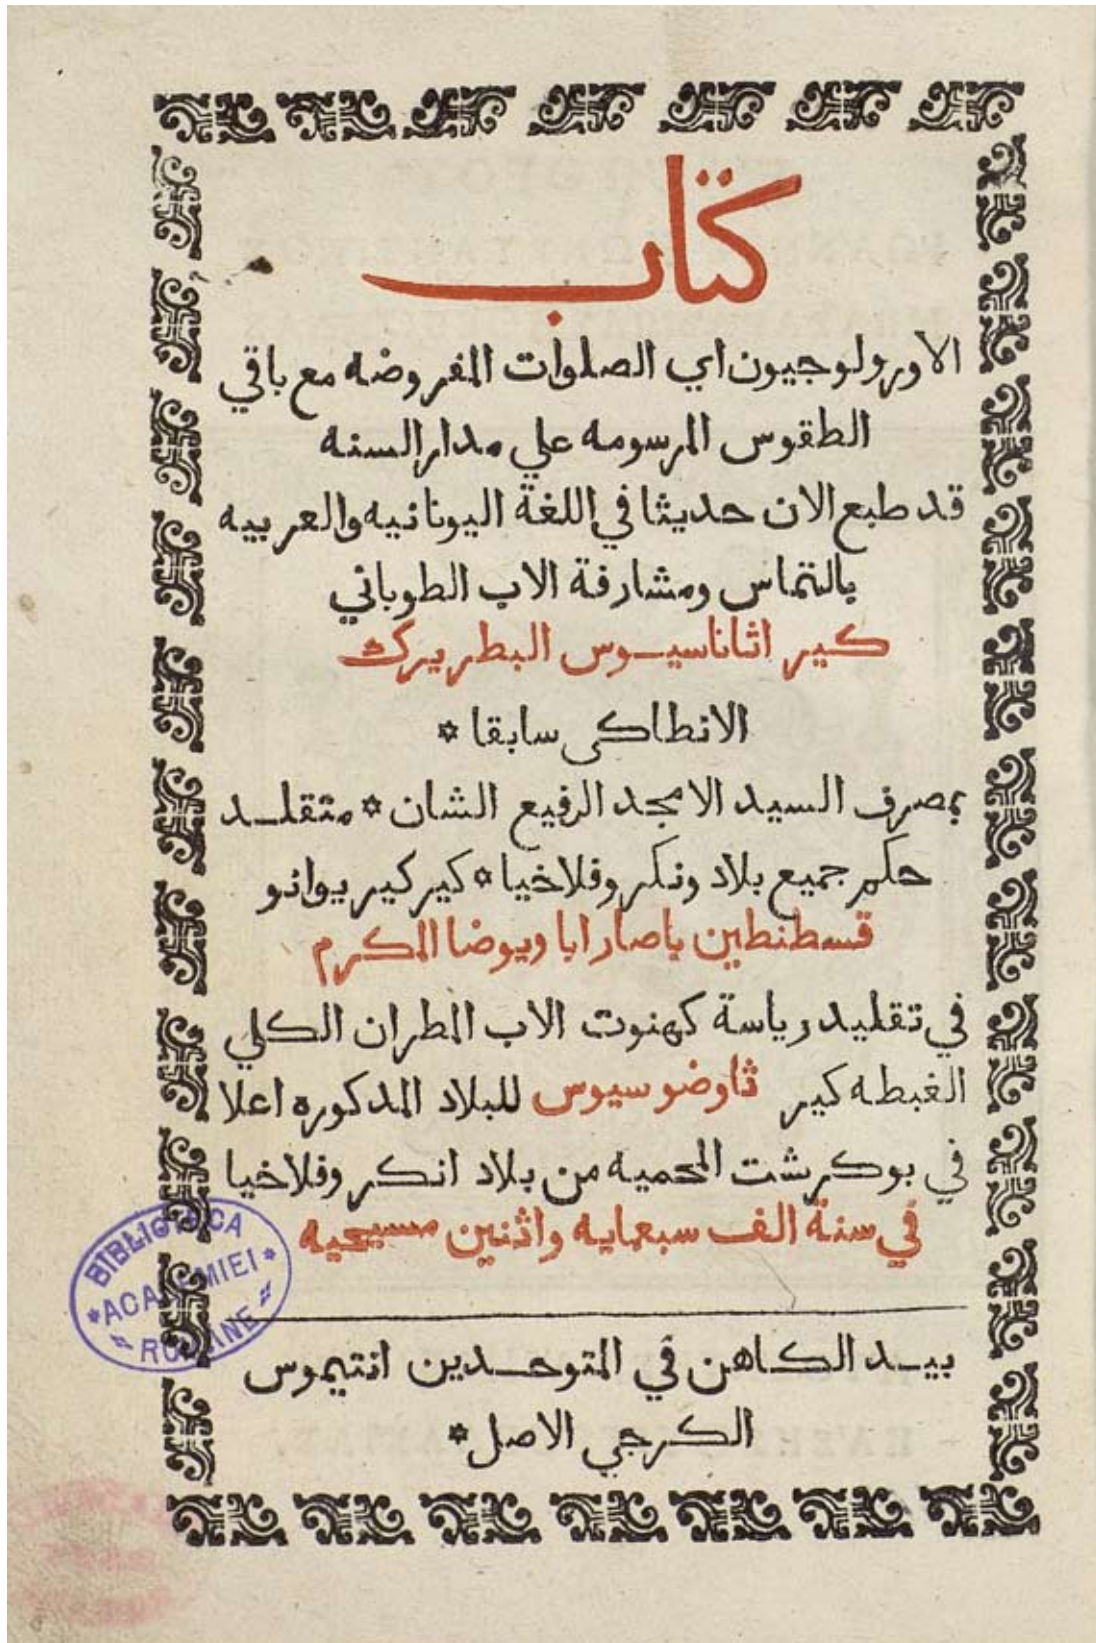 كتاب
الاورولوجيون اي الصلوات المفروضه مع باقي
الطقوس المرسومه علي مدار السنه
قد طبع الان حديثا في اللغة اليونانيه والعربيه
بالتماس ومشارفة الاب الطوباني
كير اثاناسيوس البطريرك
الانطاكي سابقا *
بمصرف السيد الامجد الرفيع الشان * متقلد
حكم جميع بلاد ونكروفلاخيا * كير كير يوانو
قسطنطين باصارابا ويوضا المكرم
في تقليد رياسة كهنوت الاب المطران الكلي
الغبطه كير ثاوضوسيوس للبلاد المذكوره اعلا
في بوكرشت المحميه من بلاد انكروفلاخيا
في سنة الف سبعمايه واثنين مسيحيه
بيد الكاهن في المتوحدين انتيموس
الكرجي الاصل *
BIBLIOTECA
* ACADEMIEI *
ROMÂNE